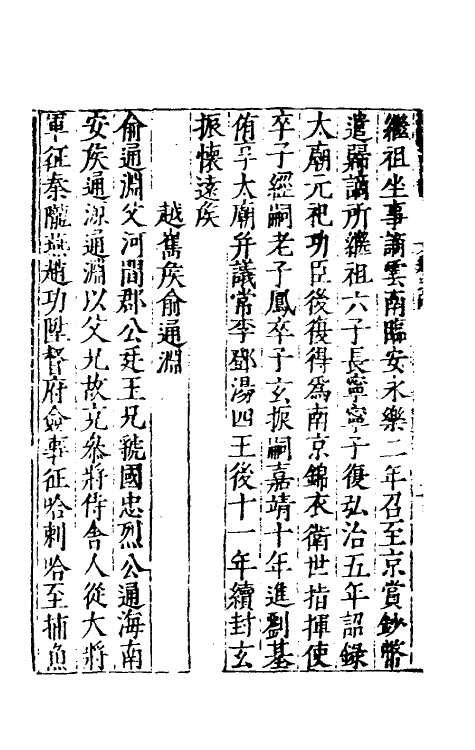 繼祖坐事謫雲南臨安永樂二年召至京賞鈔幣
遣歸謫所繼祖六子長寧寧子復弘治五年詔錄
太廟元祀功臣後復得為南京錦衣衛世指揮使
卒子經嗣老子鳳卒子玄振嗣嘉靖十年進劉基
侑享太廟并議常李鄧湯四王後十一年續封玄
振懷遠矦
越巂矦俞通淵
俞通淵父河間郡公廷玉兄虢國忠烈公通海南
安矦通源通淵以父兄故充參將侍舍人從大將
軍征秦隴燕趙功陞督府僉事征哈剌哈至捕魚